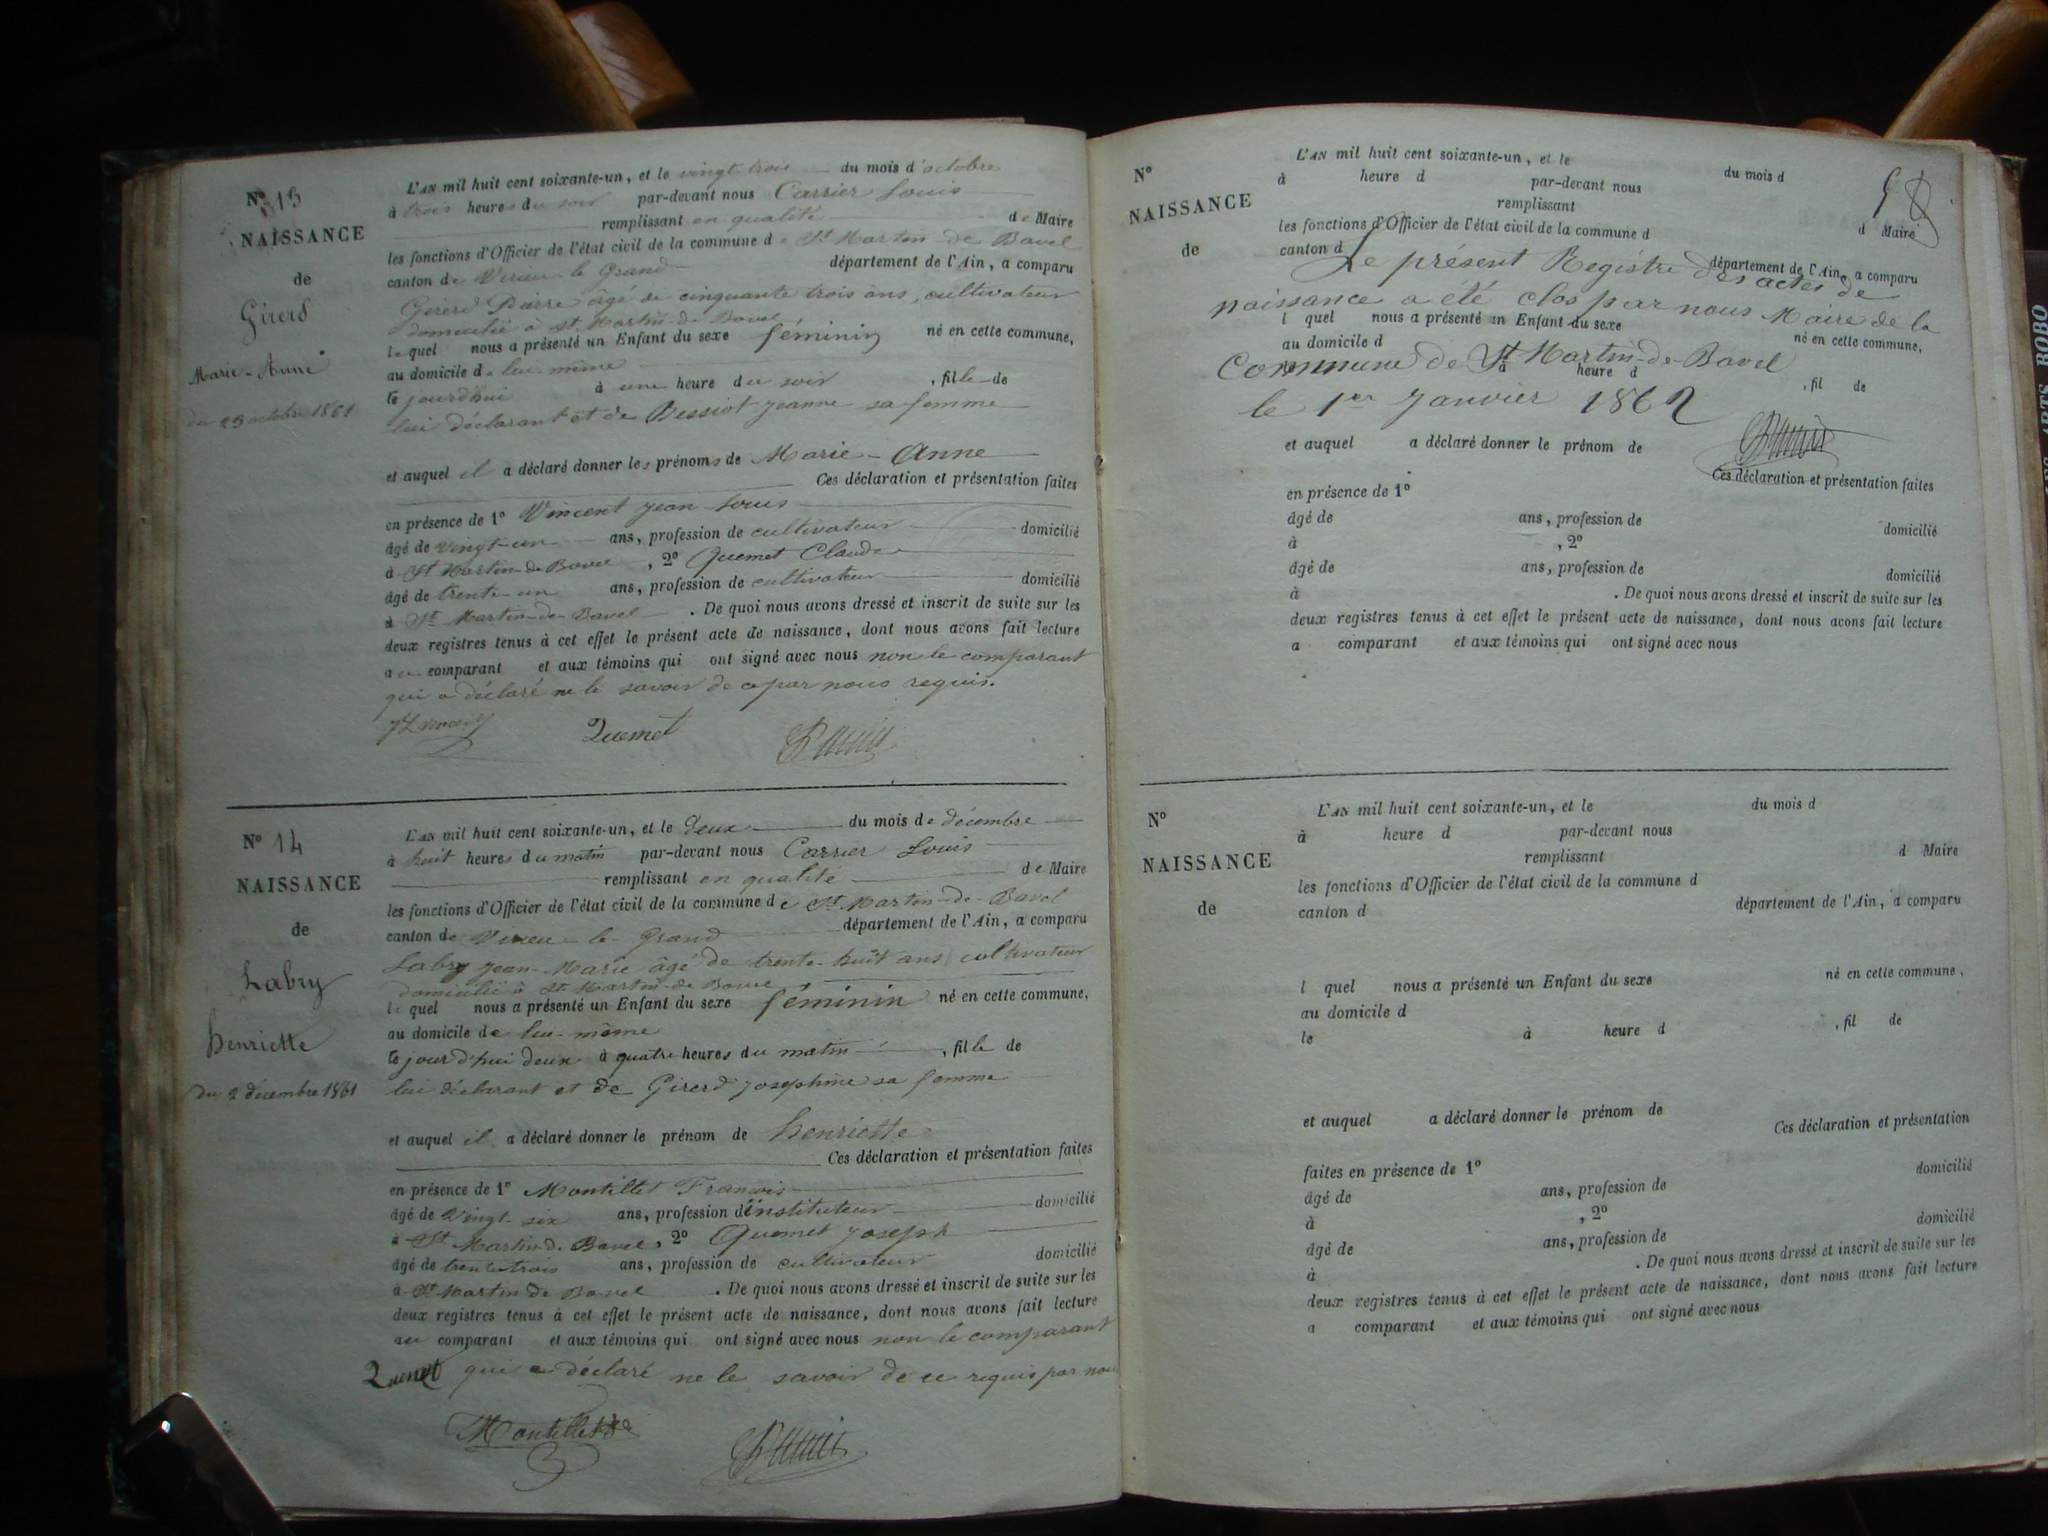 N° 13
NAISSANCE
de
Girerd
Marie-Anne
du 23 octobre 1861
L'AN mil huit cent soixante-un, et le vingt trois du mois d'octobre
à trois heures du soir par-devant nous Carrier Louis
remplissant en qualité de Maire
les fonctions d'Officier de l'état civil de la commune de St Martin-de-Bavel
canton de Virieu-le-Grand département de l'Ain, a comparu
Girerd Pierre âgé de cinquante trois ans, cultivateur
domicilié à St Martin-de-Bavel
lequel nous a présenté un Enfant du sexe féminin né en cette commune,
au domicile de lui-même
le jourd'hui à une heure du soir, fille de
lui déclarant et de Bessiot Jeanne sa femme
et auquel il a déclaré donner les prénoms de Marie-Anne
Ces déclaration et présentation faites
en présence de 1° Vincent Jean Louis
âgé de vingt-un ans, profession de cultivateur domicilié
à St Martin-de-Bavel, 2° Quemet Claude
âgé de trente-un ans, profession de cultivateur domicilié
à St Martin-de-Bavel. De quoi nous avons dressé et inscrit de suite sur les
deux registres tenus à cet effet le présent acte de naissance, dont nous avons fait lecture
au comparant et aux témoins qui ont signé avec nous non le comparant
qui a déclaré ne le savoir de ce par nous requis.
Quemet
N° 14
NAISSANCE
de
Labry
henriette
du 2 décembre 1861
L'AN mil huit cent soixante-un, et le deux du mois de décembre
à huit heures du matin par-devant nous Carrier Louis
remplissant en qualité de Maire
les fonctions d'Officier de l'état civil de la commune de St Martin-de-Bavel
canton de Virieu-le-Grand département de l'Ain, a comparu
Labry Jean-Marie âgé de trente-huit ans, cultivateur
domicilié à St Martin-de-Bavel
lequel nous a présenté un Enfant du sexe féminin né en cette commune,
au domicile de lui-même
le jourd'hui deux à quatre heures du matin, fille de
lui déclarant et de Girerd Josephine sa femme
et auquel il a déclaré donner le prénom de henriette
Ces déclaration et présentation faites
en présence de 1° Montillet François
âgé de vingt-six ans, profession d'instituteur domicilié
à St Martin-d-Bavel, 2° Quemet Joseph
âgé de trente trois ans, profession de cultivateur domicilié
à St Martin de Bavel. De quoi nous avons dressé et inscrit de suite sur les
deux registres tenus à cet effet le présent acte de naissance, dont nous avons fait lecture
au comparant et aux témoins qui ont signé avec nous non le comparant
Quemet qui a déclaré ne le savoir de ce requis par nous
Montillet
58
N°
NAISSANCE
de
L'AN mil huit cent soixante-un, et le du mois d
à heure d par-devant nous
remplissant d Maire
les fonctions d'Officier de l'état civil de la commune d
canton d département de l'Ain, a comparu
Le présent Registre des actes de
naissance a été clos par nous Maire de la
l quel nous a présenté un Enfant du sexe né en cette commune,
au domicile d
Commune de St Martin-de-Bavel
à heure d , fil de
le 1er Janvier 1862
et auquel a déclaré donner le prénom de
Ces déclaration et présentation faites
en présence de 1°
âgé de ans, profession de domicilié
à , 2°
âgé de ans, profession de domicilié
à . De quoi nous avons dressé et inscrit de suite sur les
deux registres tenus à cet effet le présent acte de naissance, dont nous avons fait lecture
a comparant et aux témoins qui ont signé avec nous
N°
NAISSANCE
de
L'AN mil huit cent soixante-un, et le du mois d
à heure d par-devant nous
remplissant d Maire
les fonctions d'Officier de l'état civil de la commune d
canton d département de l'Ain, a comparu
l quel nous a présenté un Enfant du sexe né en cette commune,
au domicile d
le à heure d , fil de
et auquel a déclaré donner le prénom de
Ces déclaration et présentation
faites en présence de 1°
âgé de ans, profession de domicilié
à , 2°
âgé de ans, profession de domicilié
à . De quoi nous avons dressé et inscrit de suite sur les
deux registres tenus à cet effet le présent acte de naissance, dont nous avons fait lecture
a comparant et aux témoins qui ont signé avec nous
ARTS ROBO